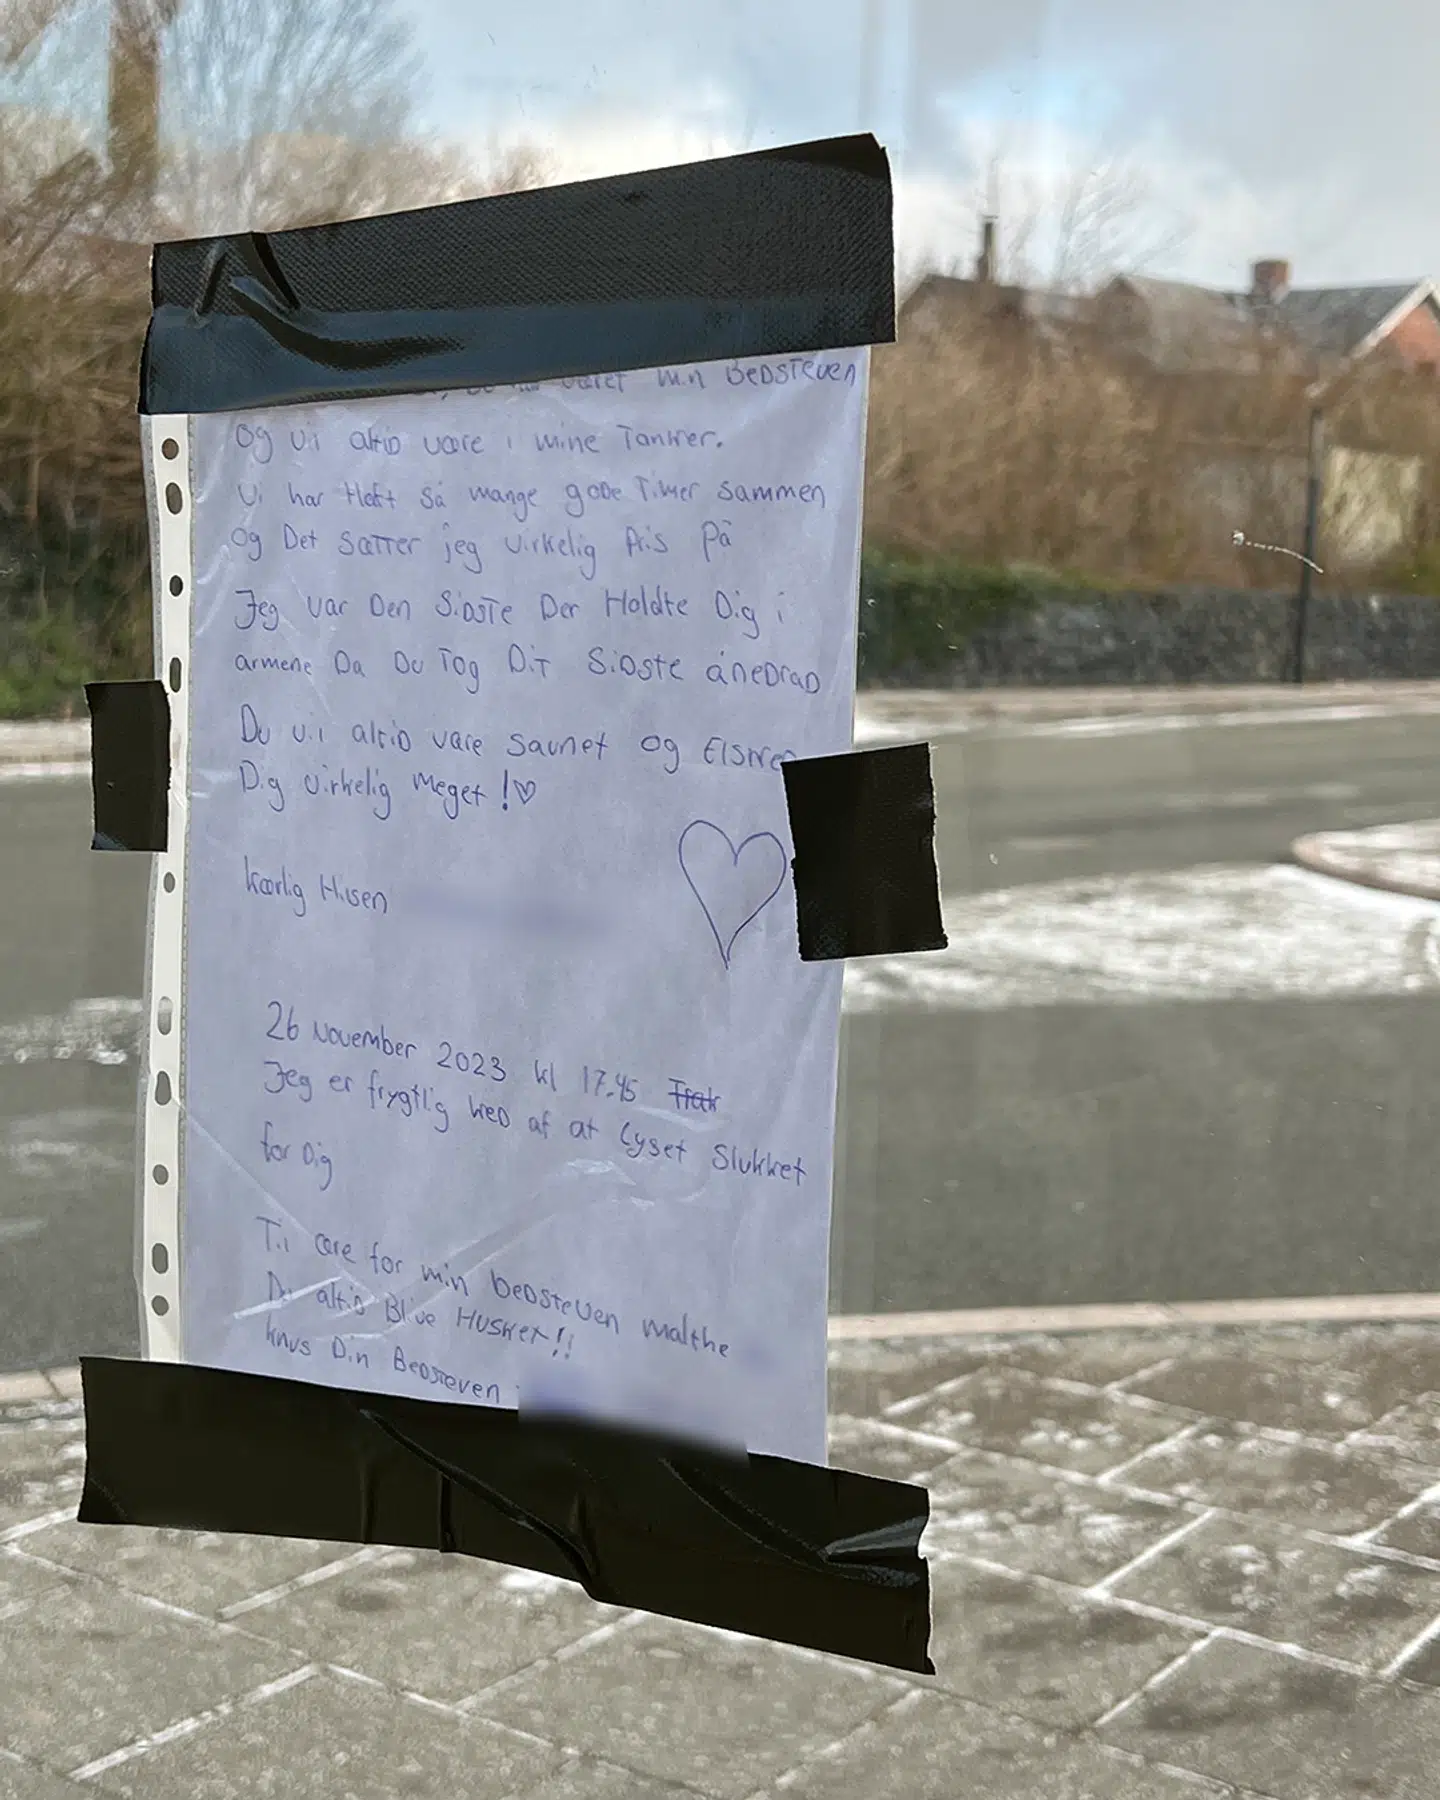 været min Bedsteven
og vil altid være i mine Tanker.
Vi har Haft så mange gode Timer sammen
og Det sætter jeg virkelig Pris På
Jeg var Den Sidste Der Holdte Dig i
armene Da Du Tog Dit Sidste åneDrad
Du vil altid være savnet og Elsker
Dig virkelig Meget !♡
kærlig Hilsen
26 November 2023 kl 17.45
Jeg er frygtlig ked af at Lyset Slukket
for Dig
Til ære for min bedsteven malthe
Du altid Blive Husket!!
knus Din Bedsteven